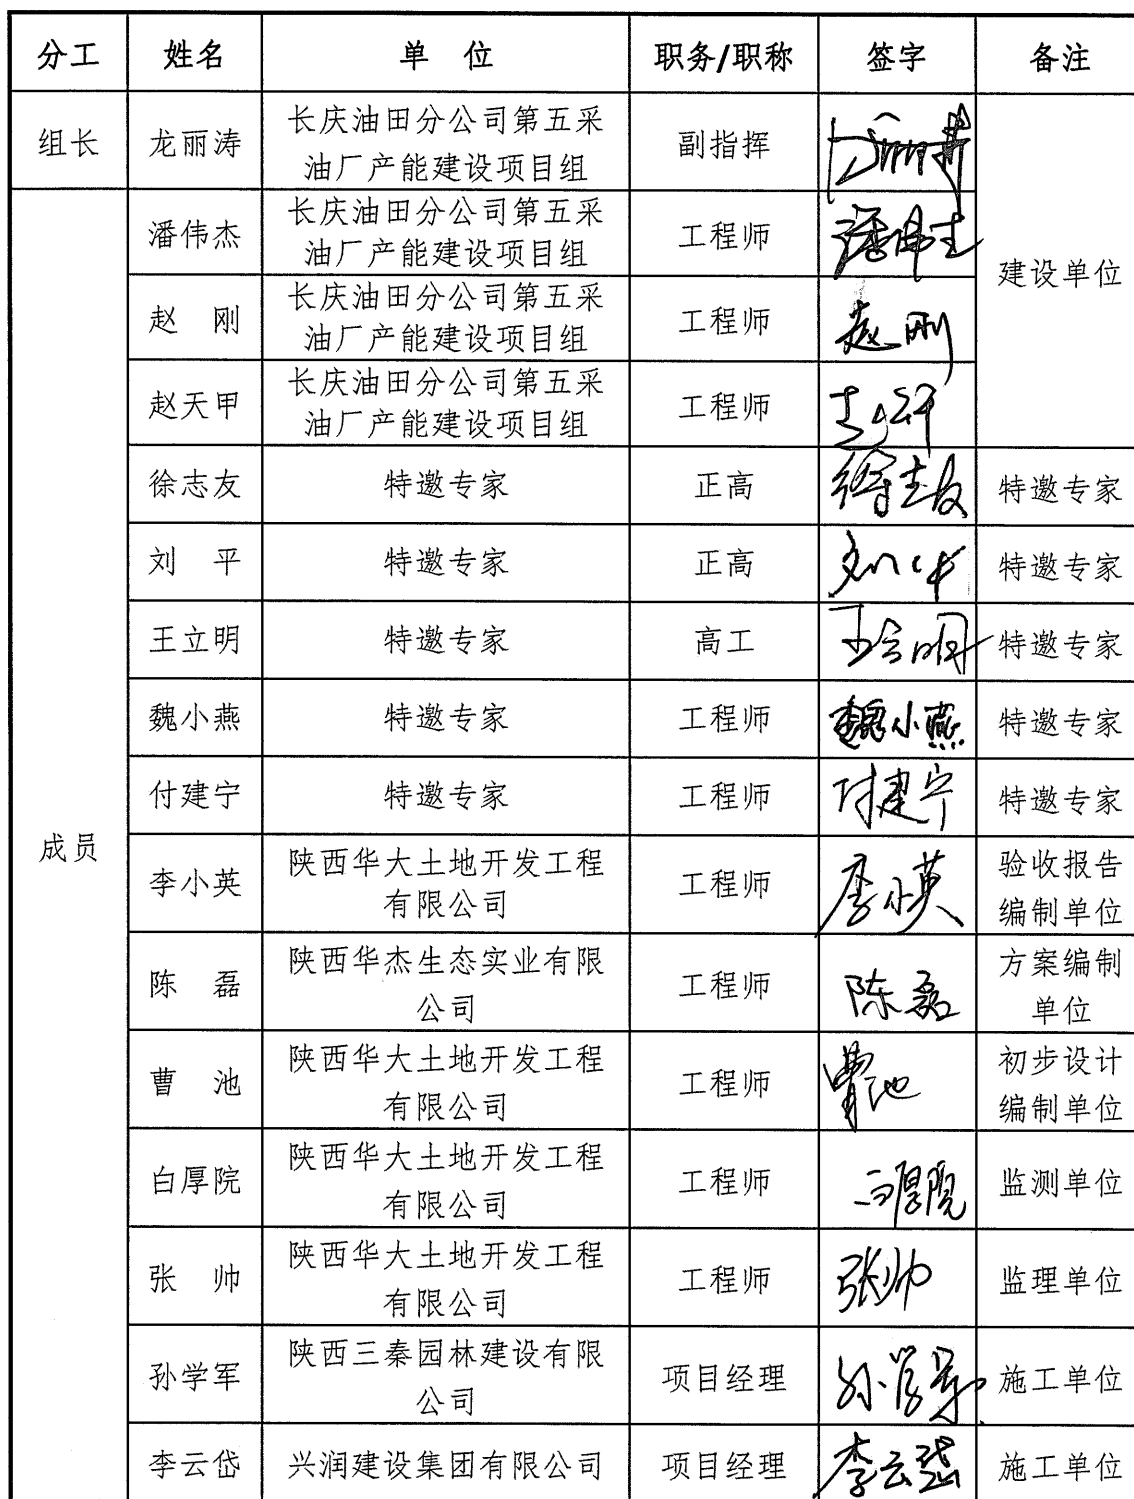 分工 姓名 单 位 职务/职称 签字 备注
组长 龙丽涛 长庆油田分公司第五采
油厂产能建设项目组 副指挥
建设单位
成员
潘伟杰 长庆油田分公司第五采
油厂产能建设项目组 工程师 潘伟杰
赵 刚 长庆油田分公司第五采
油厂产能建设项目组 工程师 赵刚
赵天甲 长庆油田分公司第五采
油厂产能建设项目组 工程师
徐志友 特邀专家 正高 徐志友 特邀专家
刘 平 特邀专家 正高 刘平 特邀专家
王立明 特邀专家 高工 王立明 特邀专家
魏小燕 特邀专家 工程师 魏小燕 特邀专家
付建宁 特邀专家 工程师 付建宁 特邀专家
李小英 陕西华大土地开发工程
有限公司 工程师 李小英 验收报告
编制单位
陈 磊 陕西华杰生态实业有限
公司 工程师 陈磊 方案编制
单位
曹 池 陕西华大土地开发工程
有限公司 工程师 曹池 初步设计
编制单位
白厚院 陕西华大土地开发工程
有限公司 工程师 白厚院 监测单位
张 帅 陕西华大土地开发工程
有限公司 工程师 张帅 监理单位
孙学军 陕西三秦园林建设有限
公司 项目经理 孙学军 施工单位
李云岱 兴润建设集团有限公司 项目经理 李云岱 施工单位